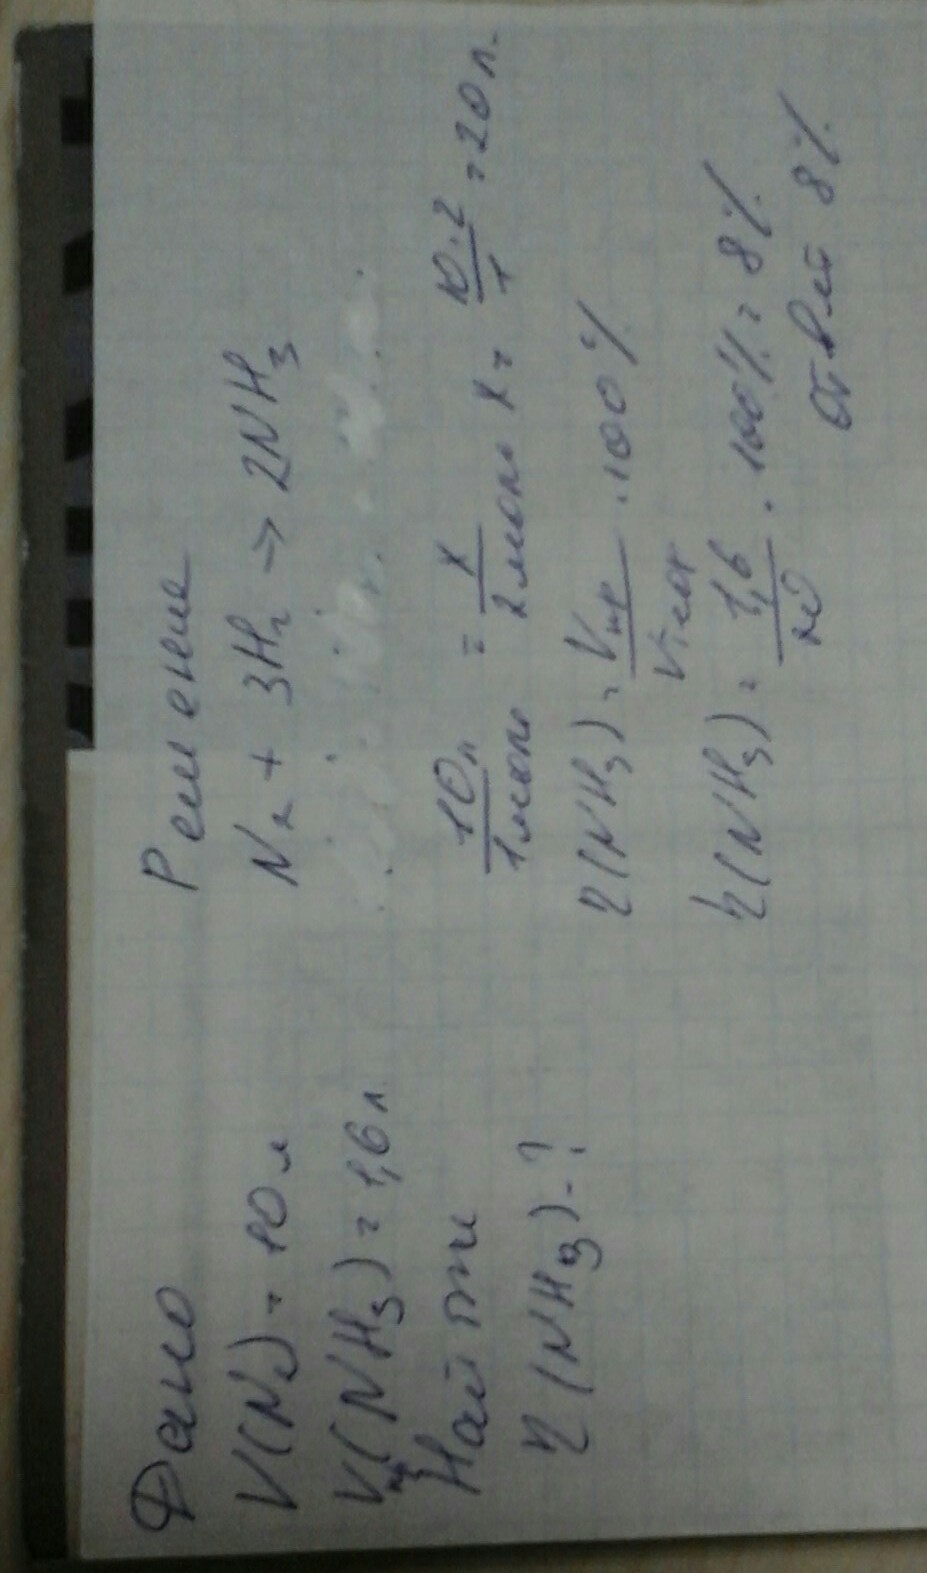 Дано
V(N₂) = 10 л
Vпр(NH₃) = 1,6 л
Найти
η(NH₃) - ?
Решение
N₂ + 3H₂ → 2NH₃
10л/1моль = x/2моль x = 10·2/1 = 20 л.
η(NH₃) = Vпр/Vтеор · 100%
η(NH₃) = 1,6/20 · 100% = 8%
Ответ 8%